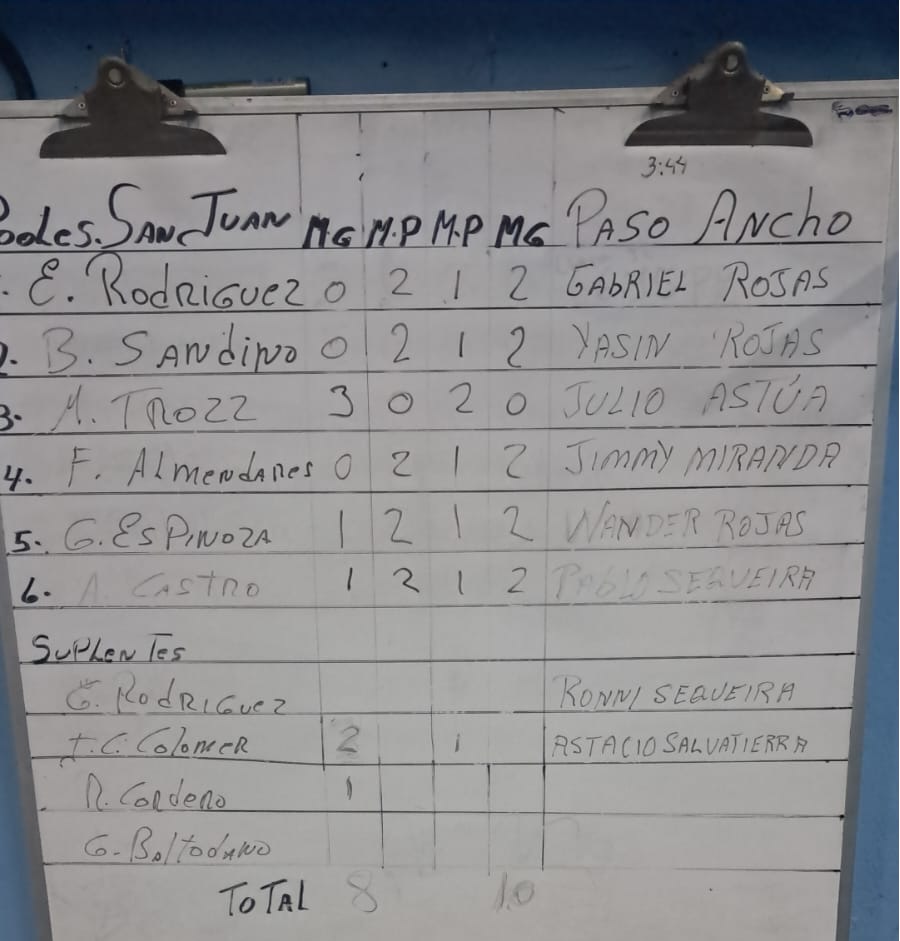 3:44
oles. SAN JUAN MG M.P M.P MG PASO ANCHO
. E. RODRIGUEZ 0 2 1 2 GABRIEL ROJAS
2. B. SANDINO 0 2 1 2 YASIN ROJAS
3. M. TROZZ 3 0 2 0 JULIO ASTÚA
4. F. ALMENDARES 0 2 1 2 JIMMY MIRANDA
5. G. ESPINOZA 1 2 1 2 WANDER ROJAS
6. A. CASTRO 1 2 1 2 PABLO SEQUEIRA
SUPLENTES
G. RODRIGUEZ RONNI SEQUEIRA
J.C. COLOMER 2 1 ASTACIO SALVATIERRA
R. CORDERO 1
G. BALTODANO
TOTAL 8 10